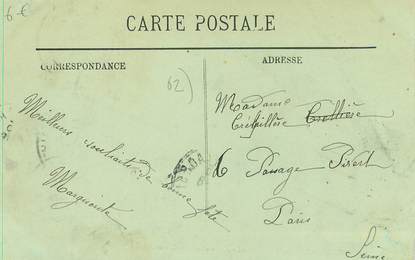 6 €
CARTE POSTALE
CORRESPONDANCE
ADRESSE
62)
Meilleurs souhaits de bonne fête
Marguerite
Madame
6 Passage
Paris
Seine